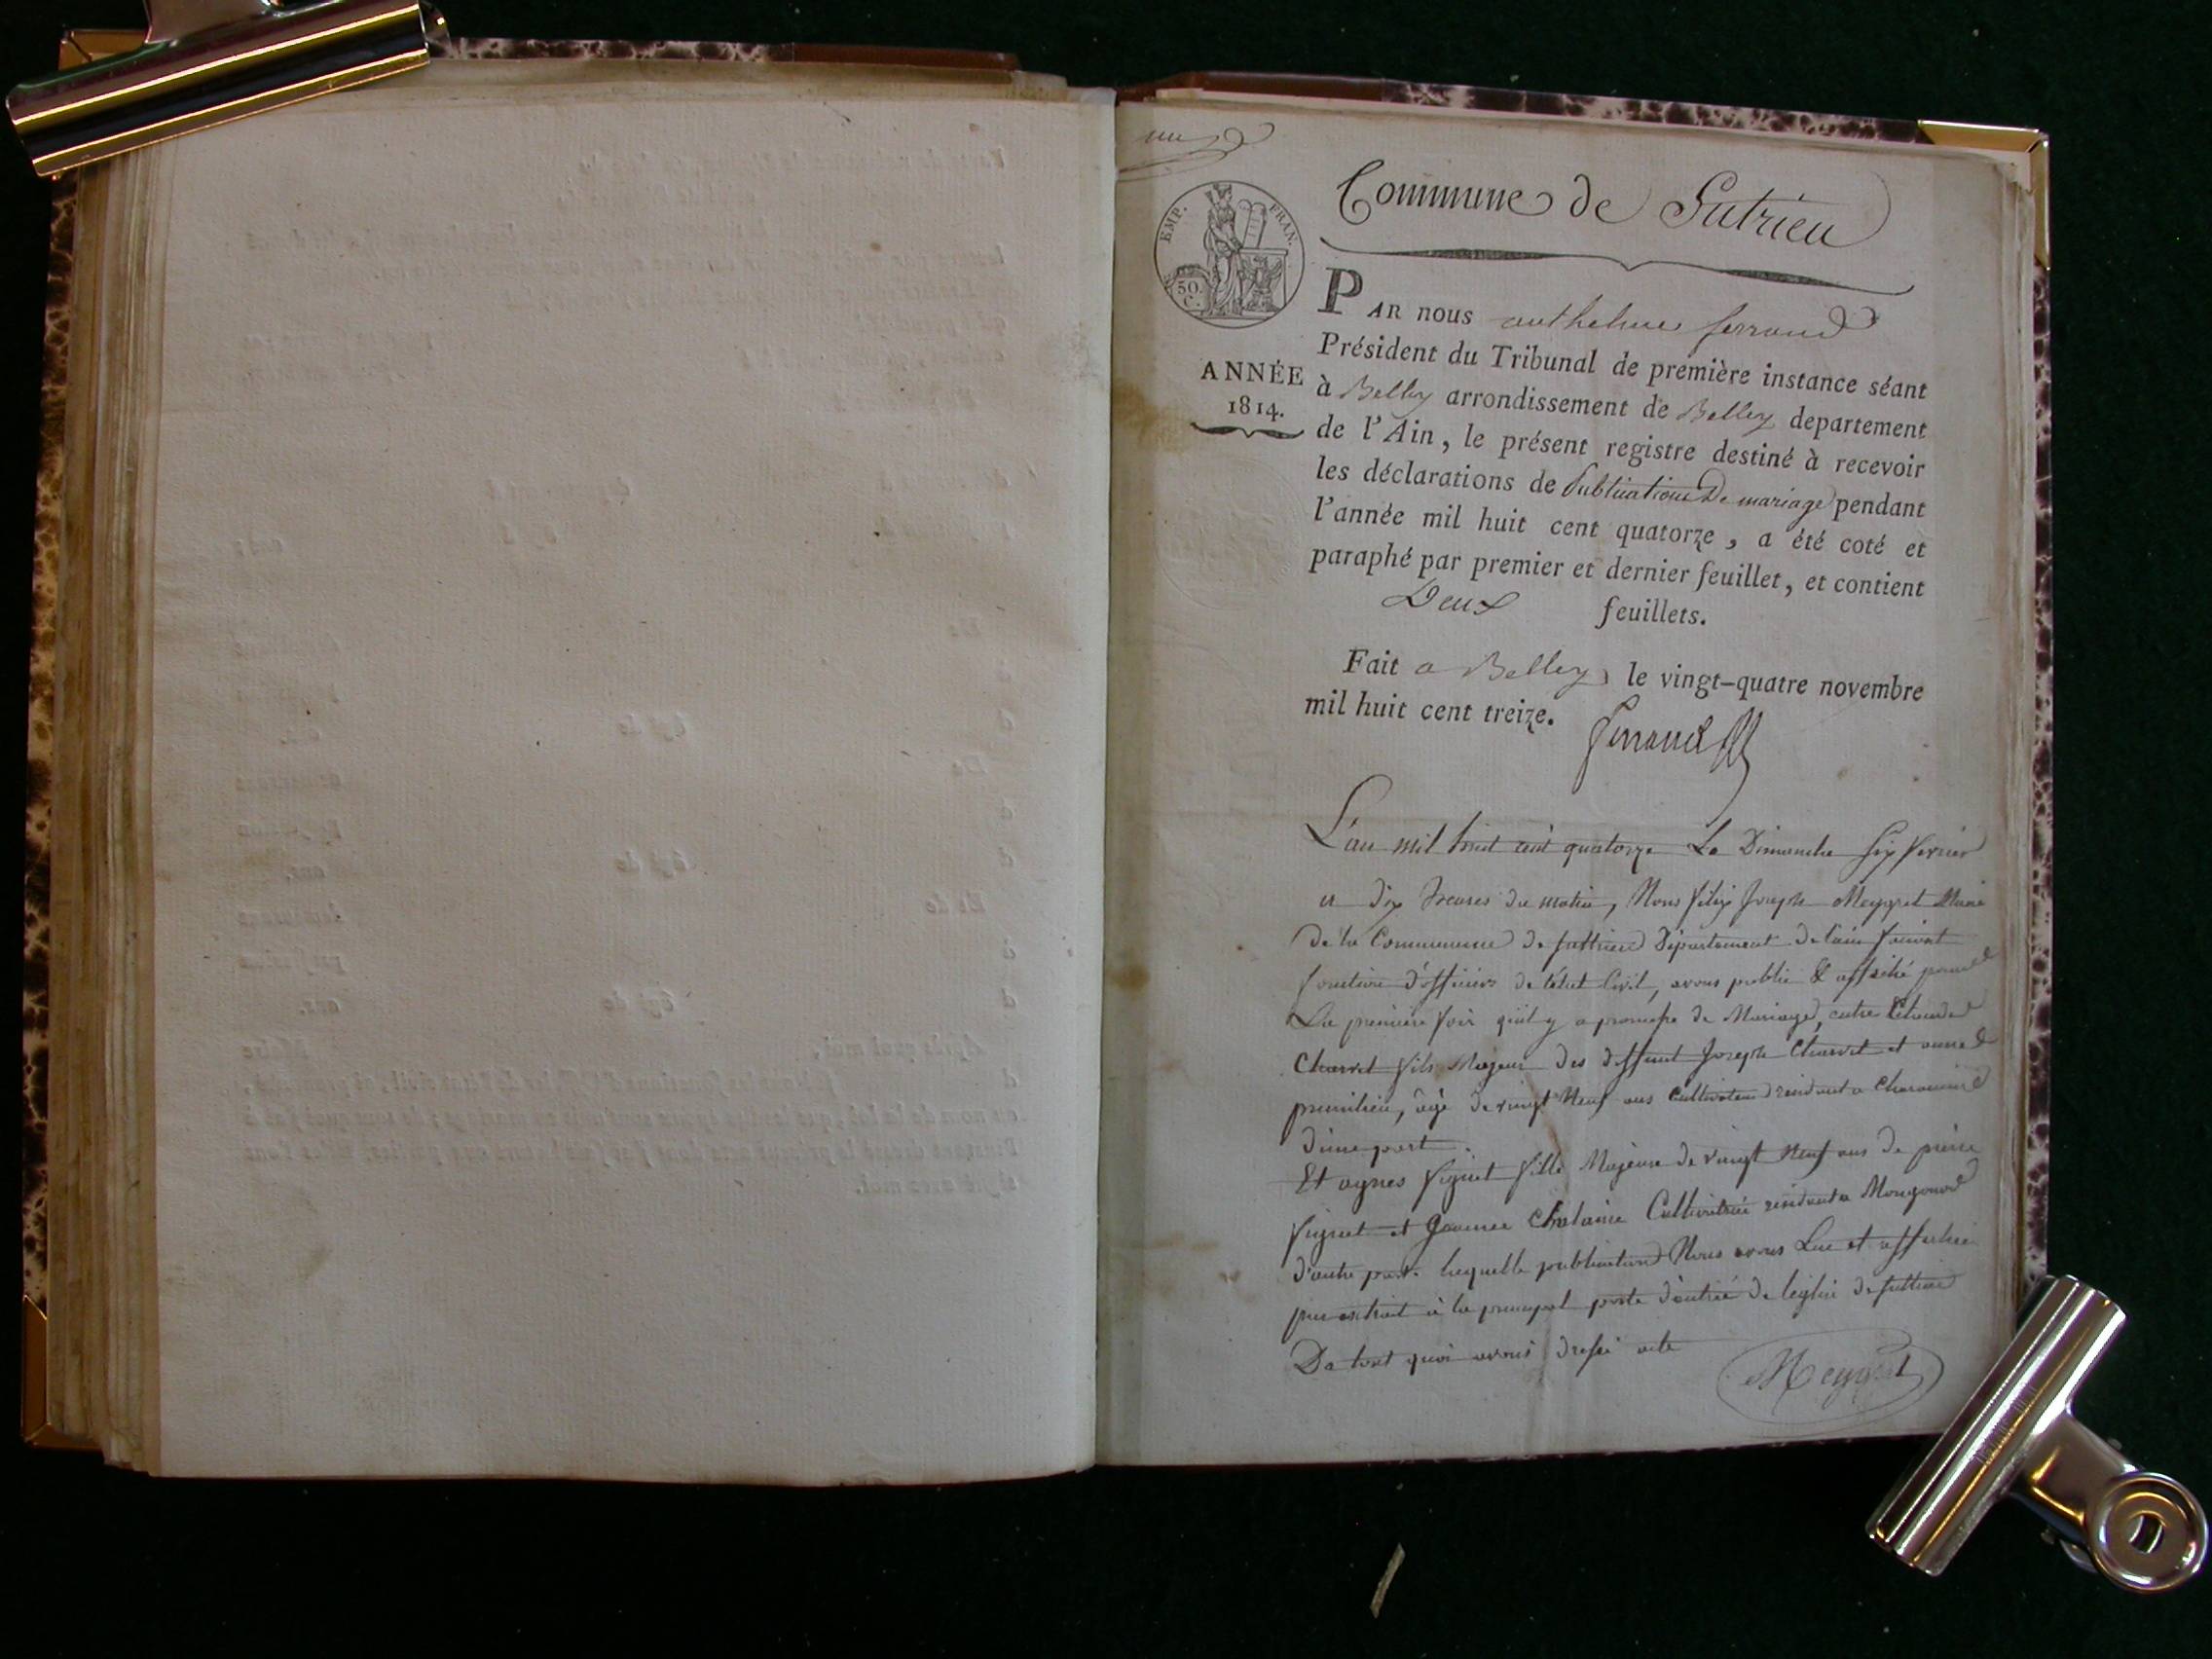 un
Commune de Sutrieu
EMP. FRAN.
50.
C.
PAR nous anthelme ferrand
Président du Tribunal de première instance séant
ANNÉE
1814.
à Belley arrondissement de Belley departement
de l'Ain, le présent registre destiné à recevoir
les déclarations de Publications De mariage pendant
l'année mil huit cent quatorze, a été coté et
paraphé par premier et dernier feuillet, et contient
Deux feuillets.
Fait a Belley, le vingt-quatre novembre
mil huit cent treize.
ferrand
L'an mil huit cent quatorze Le Dimanche six fevrier
a dix heures du matin, Nous felix Joseph Meygret Maire
De la Commune de suttrieu Département de l'ain faisant
fonction d'officier de l'état Civil, avons publié & affiché pour
La premiere fois qu'il y a promesse de Mariage, entre
Charvet fils Majeur des deffunt Joseph Charvet et anne
pumilieu, âgé de vingt Neuf ans Cultivateur residant a
d'une part.
Et agnes figuet fille Majeure de vingt neuf ans de pierre
figuet et Chalaine Cultivatrice residant a Mongonod
d'autre part. Laquelle publication Nous avons Lue et affichée
par extrait à la principal porte d'entrée de l'église de suttrieu
De tout quoi avons dressé acte
Meygret